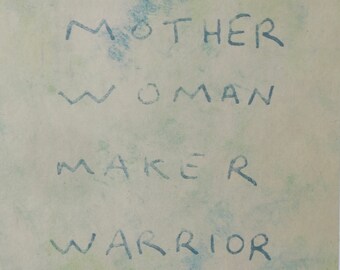 MOTHER
WOMAN
MAKER
WARRIOR